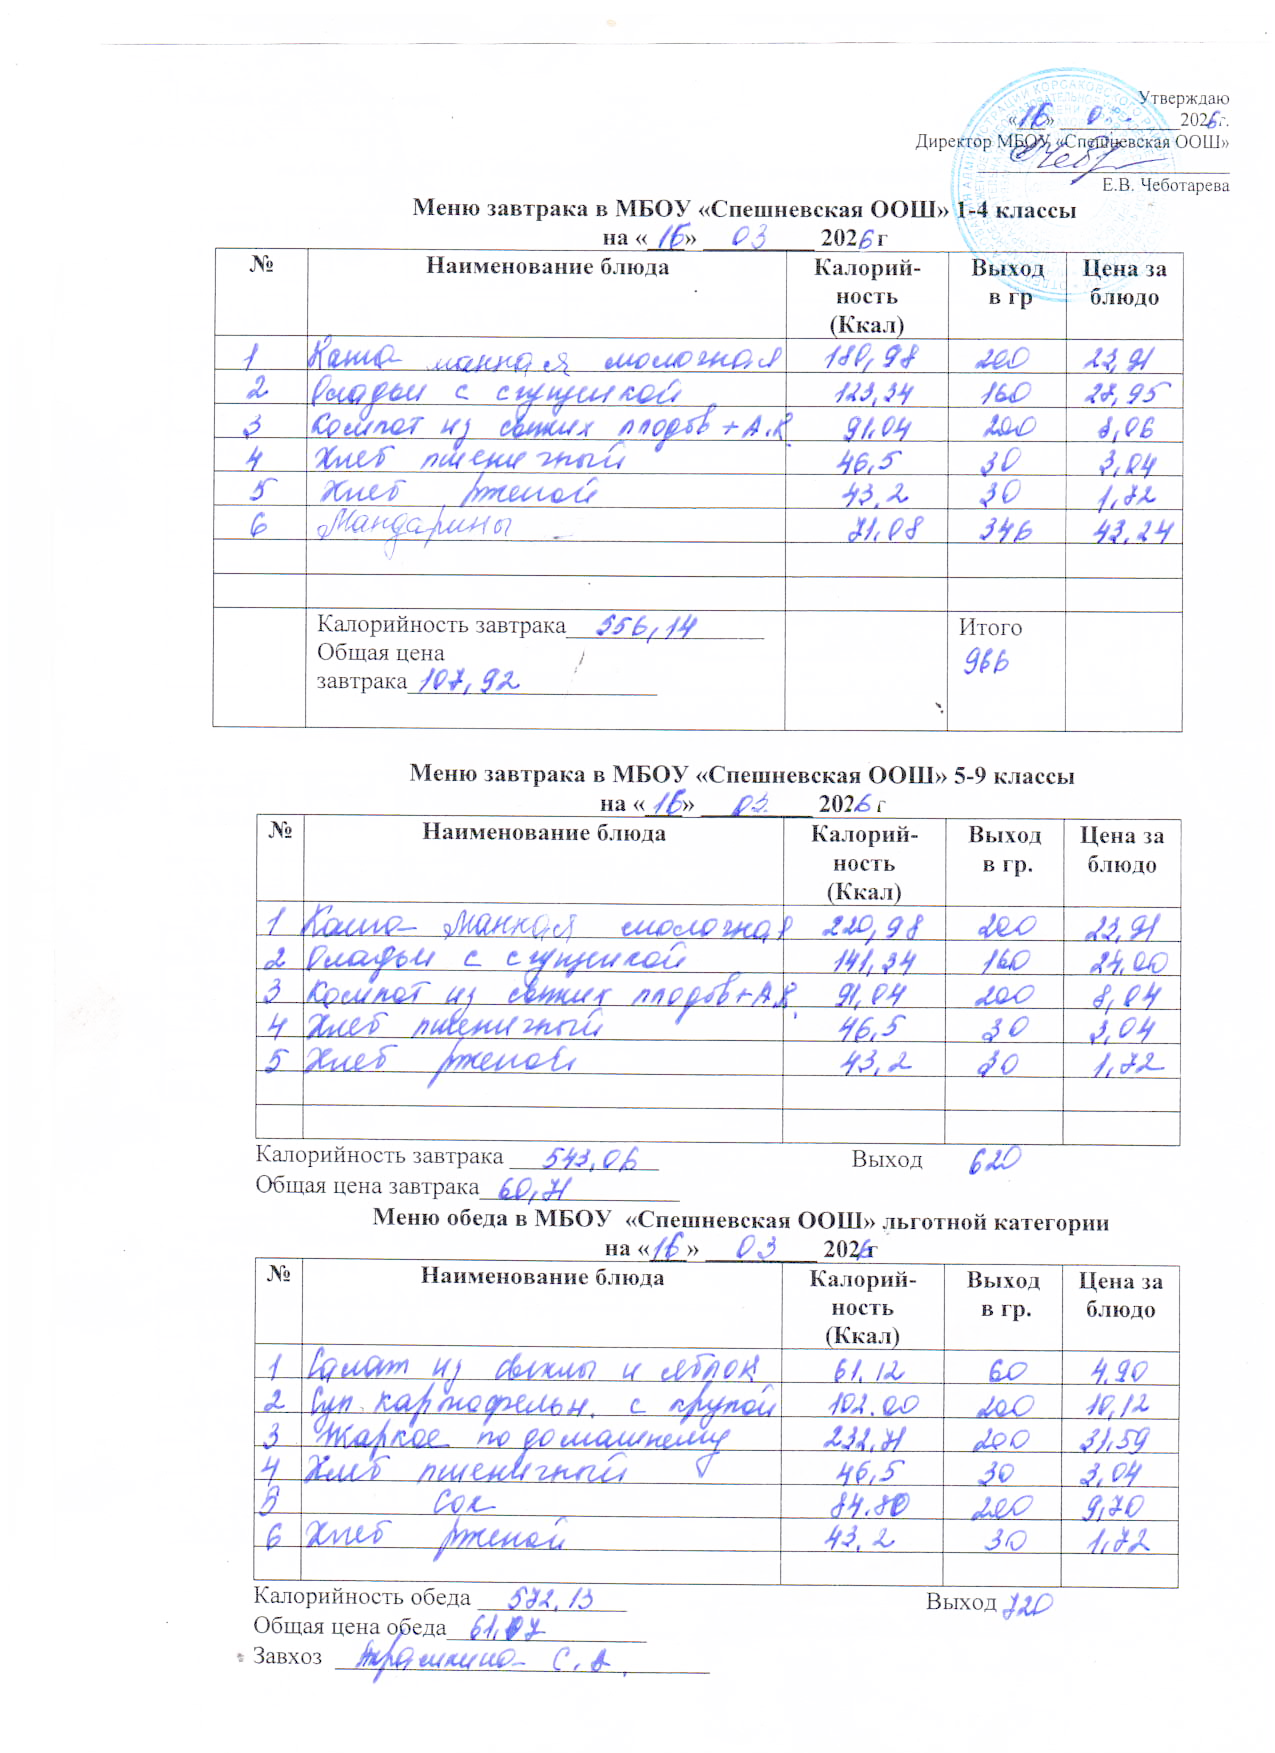 Утверждаю
«16» 0 2026г.
Директор МБОУ «Спешневская ООШ»
Е.В. Чеботарева
Меню завтрака в МБОУ «Спешневская ООШ» 1-4 классы
на «16» 03 2026 г
№ Наименование блюда Калорий-ность (Ккал) Выход в гр Цена за блюдо
1 Каша манная молочная 180,98 200 23,91
2 Оладьи с сгущенкой 123,34 160 27,95
3 Компот из свежих плодов + А.К. 91.04 200 8,06
4 Хлеб пшеничный 46,5 30 3,04
5 Хлеб ржаной 43,2 30 1,72
6 Мандарины 71.08 346 43,24
Калорийность завтрака 556,14 Итого
Общая цена 966
завтрака 107,92
Меню завтрака в МБОУ «Спешневская ООШ» 5-9 классы
на «16» 03 2026 г
№ Наименование блюда Калорий-ность (Ккал) Выход в гр. Цена за блюдо
1 Каша манная молочная 220,98 200 23,91
2 Оладьи с сгущенкой 141,34 160 24.00
3 Компот из свежих плодов + А.К. 91,04 200 8,04
4 Хлеб пшеничный 46,5 30 3,04
5 Хлеб ржаной 43,2 30 1,72
Калорийность завтрака 543,06 Выход 620
Общая цена завтрака 60,71
Меню обеда в МБОУ «Спешневская ООШ» льготной категории
на «16» 03 2026г
№ Наименование блюда Калорий-ность (Ккал) Выход в гр. Цена за блюдо
1 Салат из свеклы и яблок 61.12 60 4.90
2 Суп картофельн. с крупой 102.00 200 10,12
3 Жаркое по домашнему 232,71 200 31,59
4 Хлеб пшеничный 46,5 30 3,04
5 Сок 84.80 200 9,70
6 Хлеб ржаной 43,2 30 1,72
Калорийность обеда 572,13 Выход 720
Общая цена обеда 61,07
Завхоз С.А.